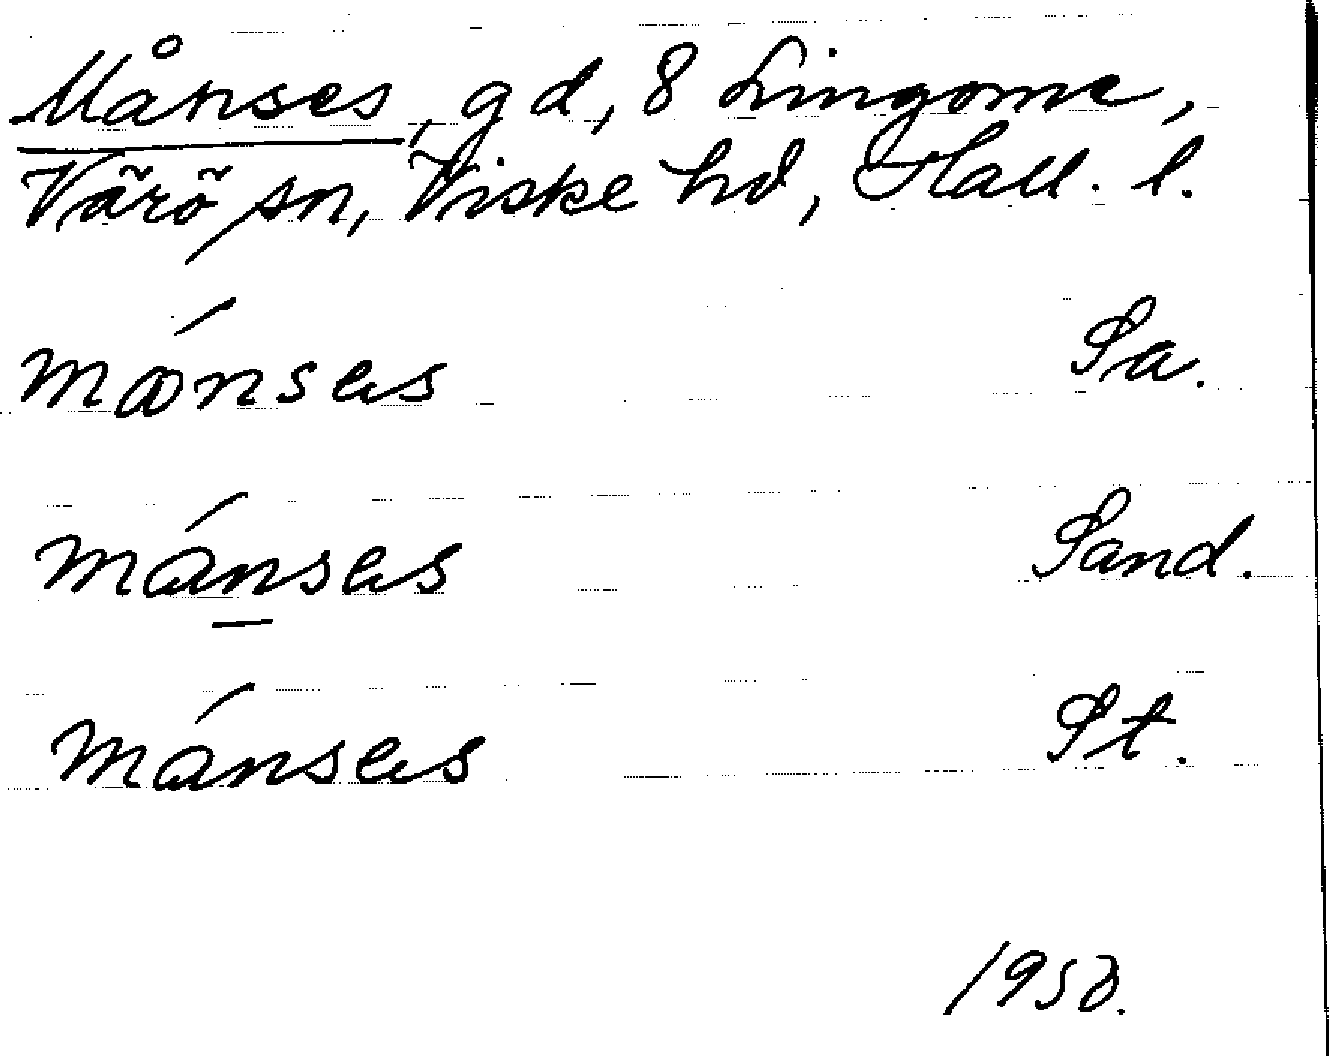 Månses, gd, 8 Lingome,
Värö sn, Viske hd, Hall. l.
mɷ́nsəs Sa.
mánsəs Sand.
mánsəs St.
1950.